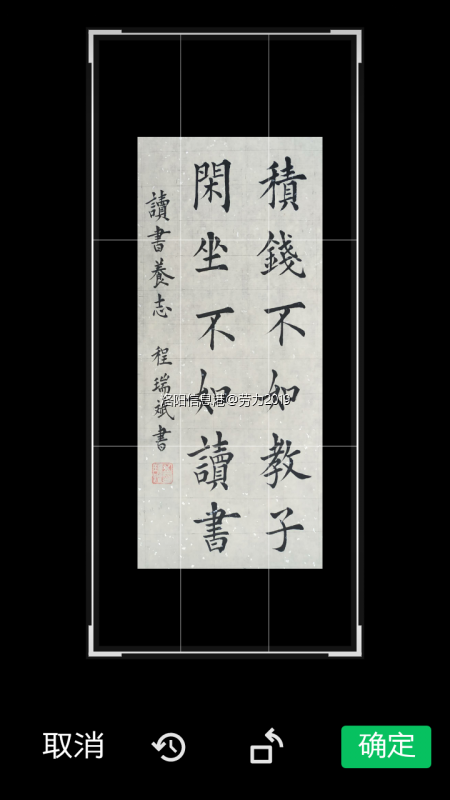 積錢不如教子
閑坐不如讀書
讀書養志 程瑞斌書
洛阳信息港@劳力2019
取消
确定